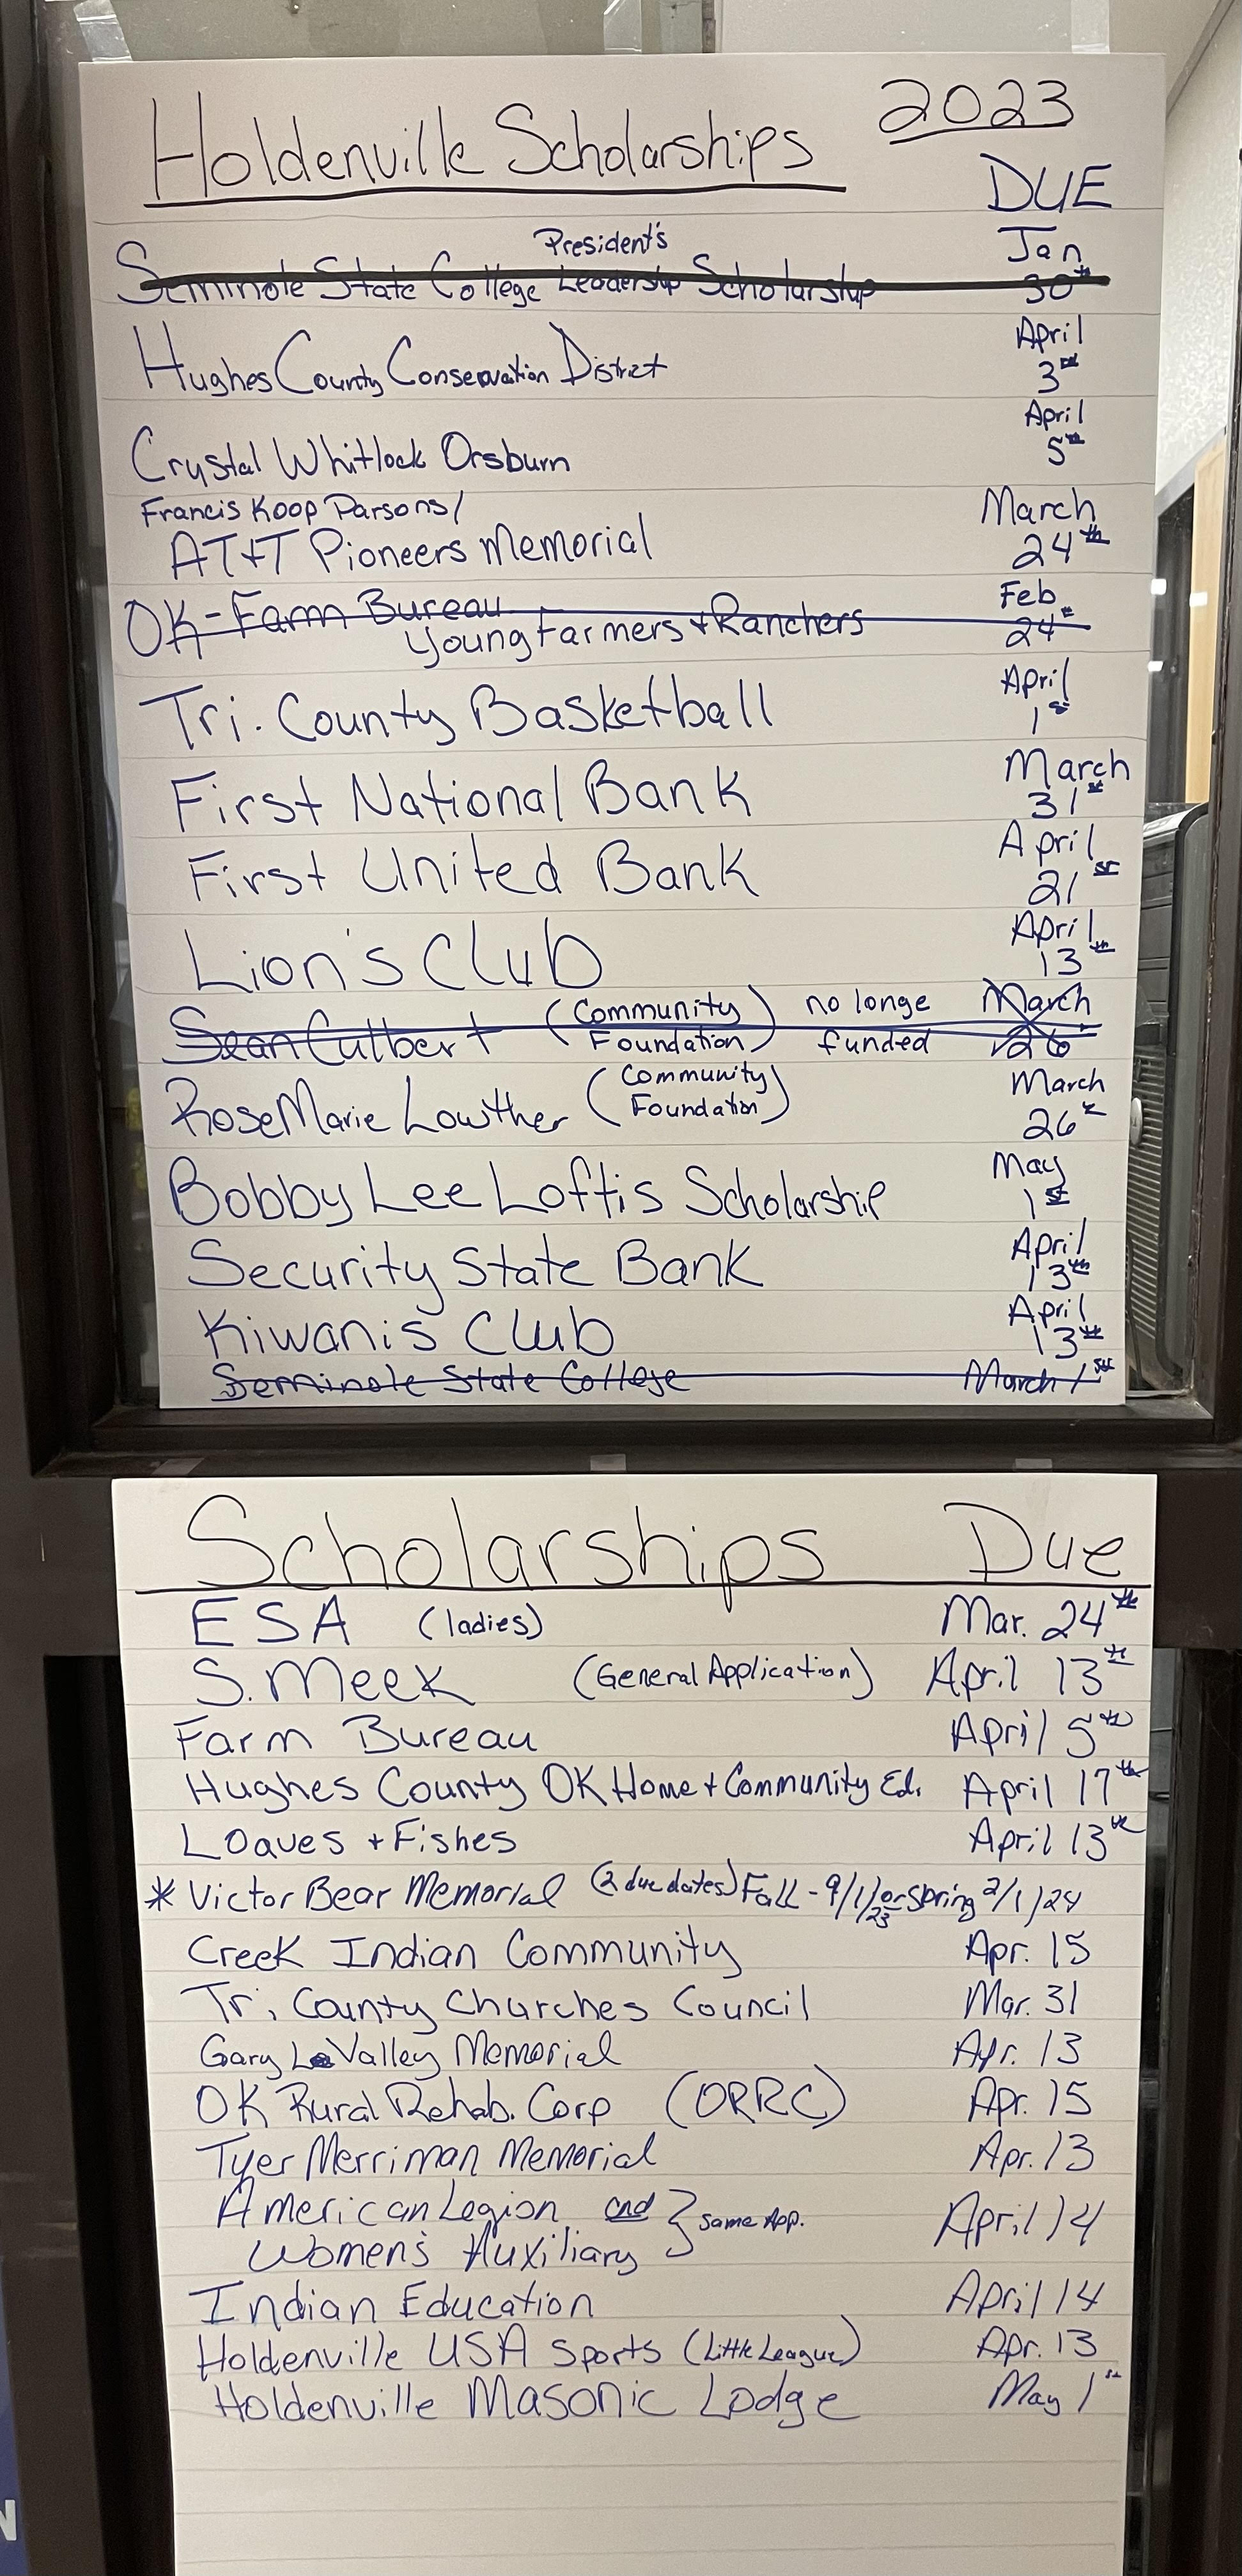 Holdenville Scholarships 2023
DUE
President's Jan
Seminole State College Leadership Scholarship 30th
Hughes County Conservation District April 3rd
Crystal Whitlock Orsburn April 5th
Francis Koop Parsons/ March
AT+T Pioneers Memorial 24th
OK-Farm Bureau Feb
Young Farmers + Ranchers 24th
Tri. County Basketball April 1st
First National Bank March 31st
First United Bank April 21st
Lion's Club April 13th
Sean Culbert (Community Foundation) no longe funded March 26
RoseMarie Lowther (Community Foundation) March 26th
Bobby Lee Loftis Scholarship May 1st
Security State Bank April 13th
Kiwanis Club April 13th
Seminole State College March 1st
Scholarships Due
ESA (ladies) Mar. 24th
S. Meek (General Application) April 13th
Farm Bureau April 5th
Hughes County OK Home + Community Ed. April 17th
Loaves + Fishes April 13th
* Victor Bear Memorial (2 due dates) Fall - 9/1/23 or Spring 2/1/24
Creek Indian Community Apr. 15
Tri. County Churches Council Mar. 31
Gary LeValley Memorial Apr. 13
OK Rural Rehab. Corp (ORRC) Apr. 15
Tyer Merriman Memorial Apr. 13
American Legion and } same App. April 14
Women's Auxiliary
Indian Education April 14
Holdenville USA Sports (Little League) Apr. 13
Holdenville Masonic Lodge May 1st
N